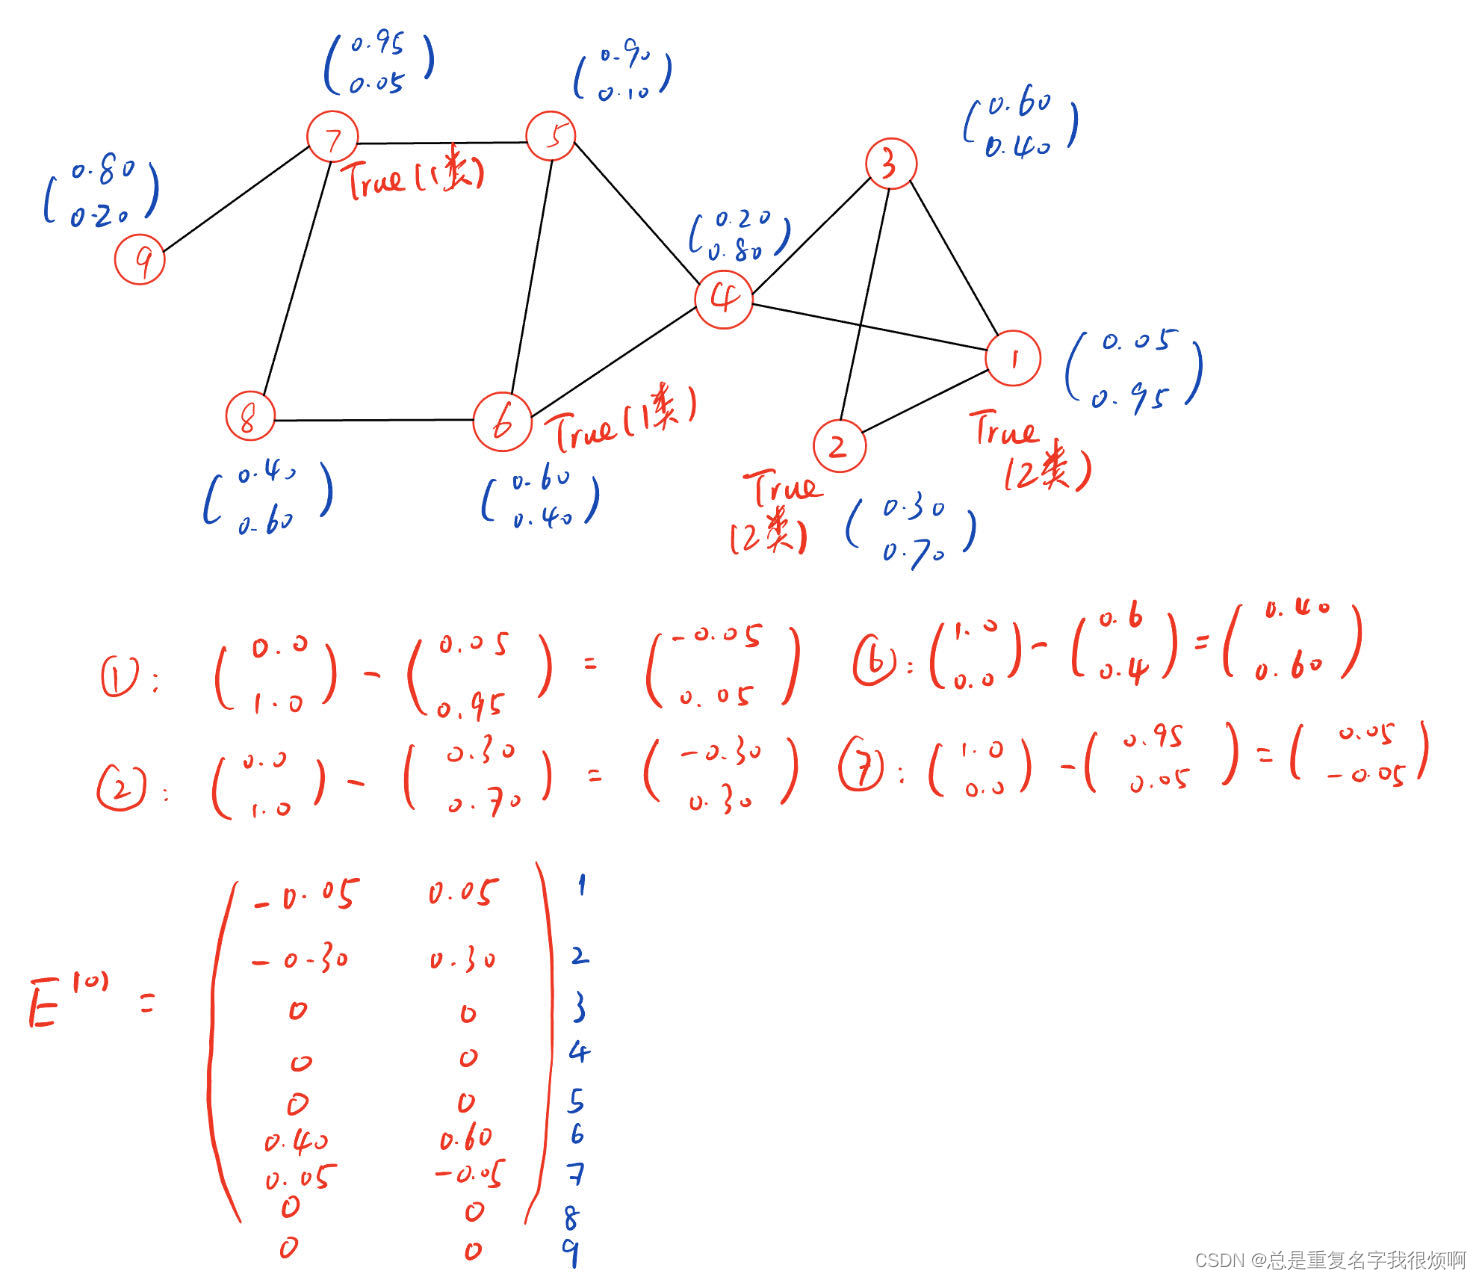 (0.95
0.05)
(0.90
0.10)
(0.60
0.40)
(0.80
0.20)
7
5
3
True(1类)
9
(0.20
0.80)
4
1
(0.05
0.95)
8
6
True(1类)
2
True
(2类)
True
(2类)
(0.40
0.60)
(0.60
0.40)
(0.30
0.70)
①: (0.0 1.0) - (0.05 0.95) = (-0.05 0.05)
⑥: (1.0 0.0) - (0.6 0.4) = (0.40 0.60)
②: (0.0 1.0) - (0.30 0.70) = (-0.30 0.30)
⑦: (1.0 0.0) - (0.95 0.05) = (0.05 -0.05)
E^(0) =
-0.05 0.05 1
-0.30 0.30 2
0 0 3
0 0 4
0 0 5
0.40 0.60 6
0.05 -0.05 7
0 0 8
0 0 9
CSDN @总是重复名字我很烦啊